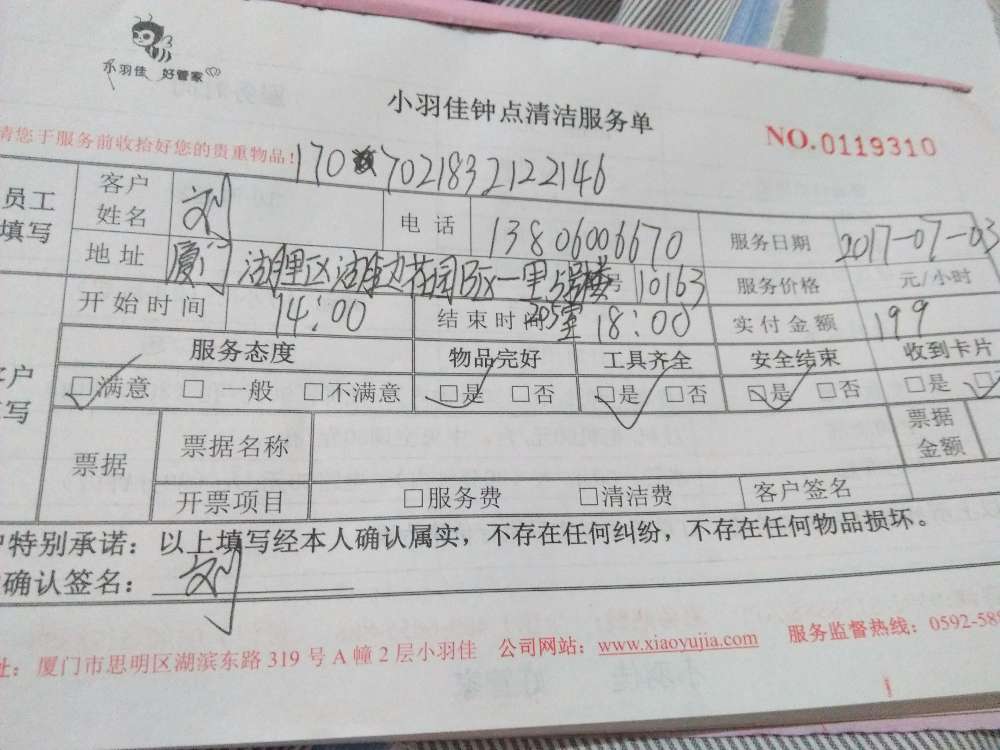 小羽佳 好管家
小羽佳钟点清洁服务单
NO.0119310
请您于服务前收拾好您的贵重物品!
170 7021832122146
员工填写 客户姓名 刘 电话 13806006670 服务日期 2017-07-03
地址 厦门 湖里区湖边花园B区一里 号 10163 服务价格 元/小时
205室
开始时间 14:00 结束时间 18:00 实付金额 199
服务态度 物品完好 工具齐全 安全结束 收到卡片
□满意 □一般 □不满意 □是 □否 □是 □否 □是 □否 □是 □
票据 票据名称 票据金额
开票项目 □服务费 □清洁费 客户签名
户特别承诺：以上填写经本人确认属实，不存在任何纠纷，不存在任何物品损坏。
确认签名：刘
址：厦门市思明区湖滨东路319号A幢2层小羽佳 公司网站：www.xiaoyujia.com 服务监督热线：0592-588